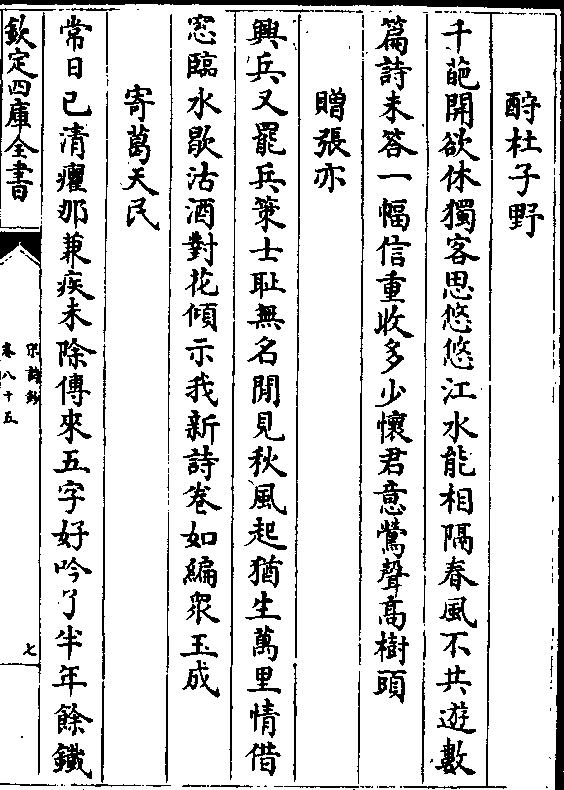 酹杜子野
千葩開欲休獨客思悠悠江水能相隔春風不共遊數
篇詩未答一幅信重收多少懷君意鶯聲高樹頭
贈張亦
興兵又罷兵策士恥無名閒見秋風起猶生萬里情借
窓臨水歇沽酒對花傾示我新詩卷如編衆玉成
寄葛天民
常日已清癯那兼疾未除傳來五字好吟了半年餘鐵
欽定四庫全書
宋詩鈔
卷八十五
七